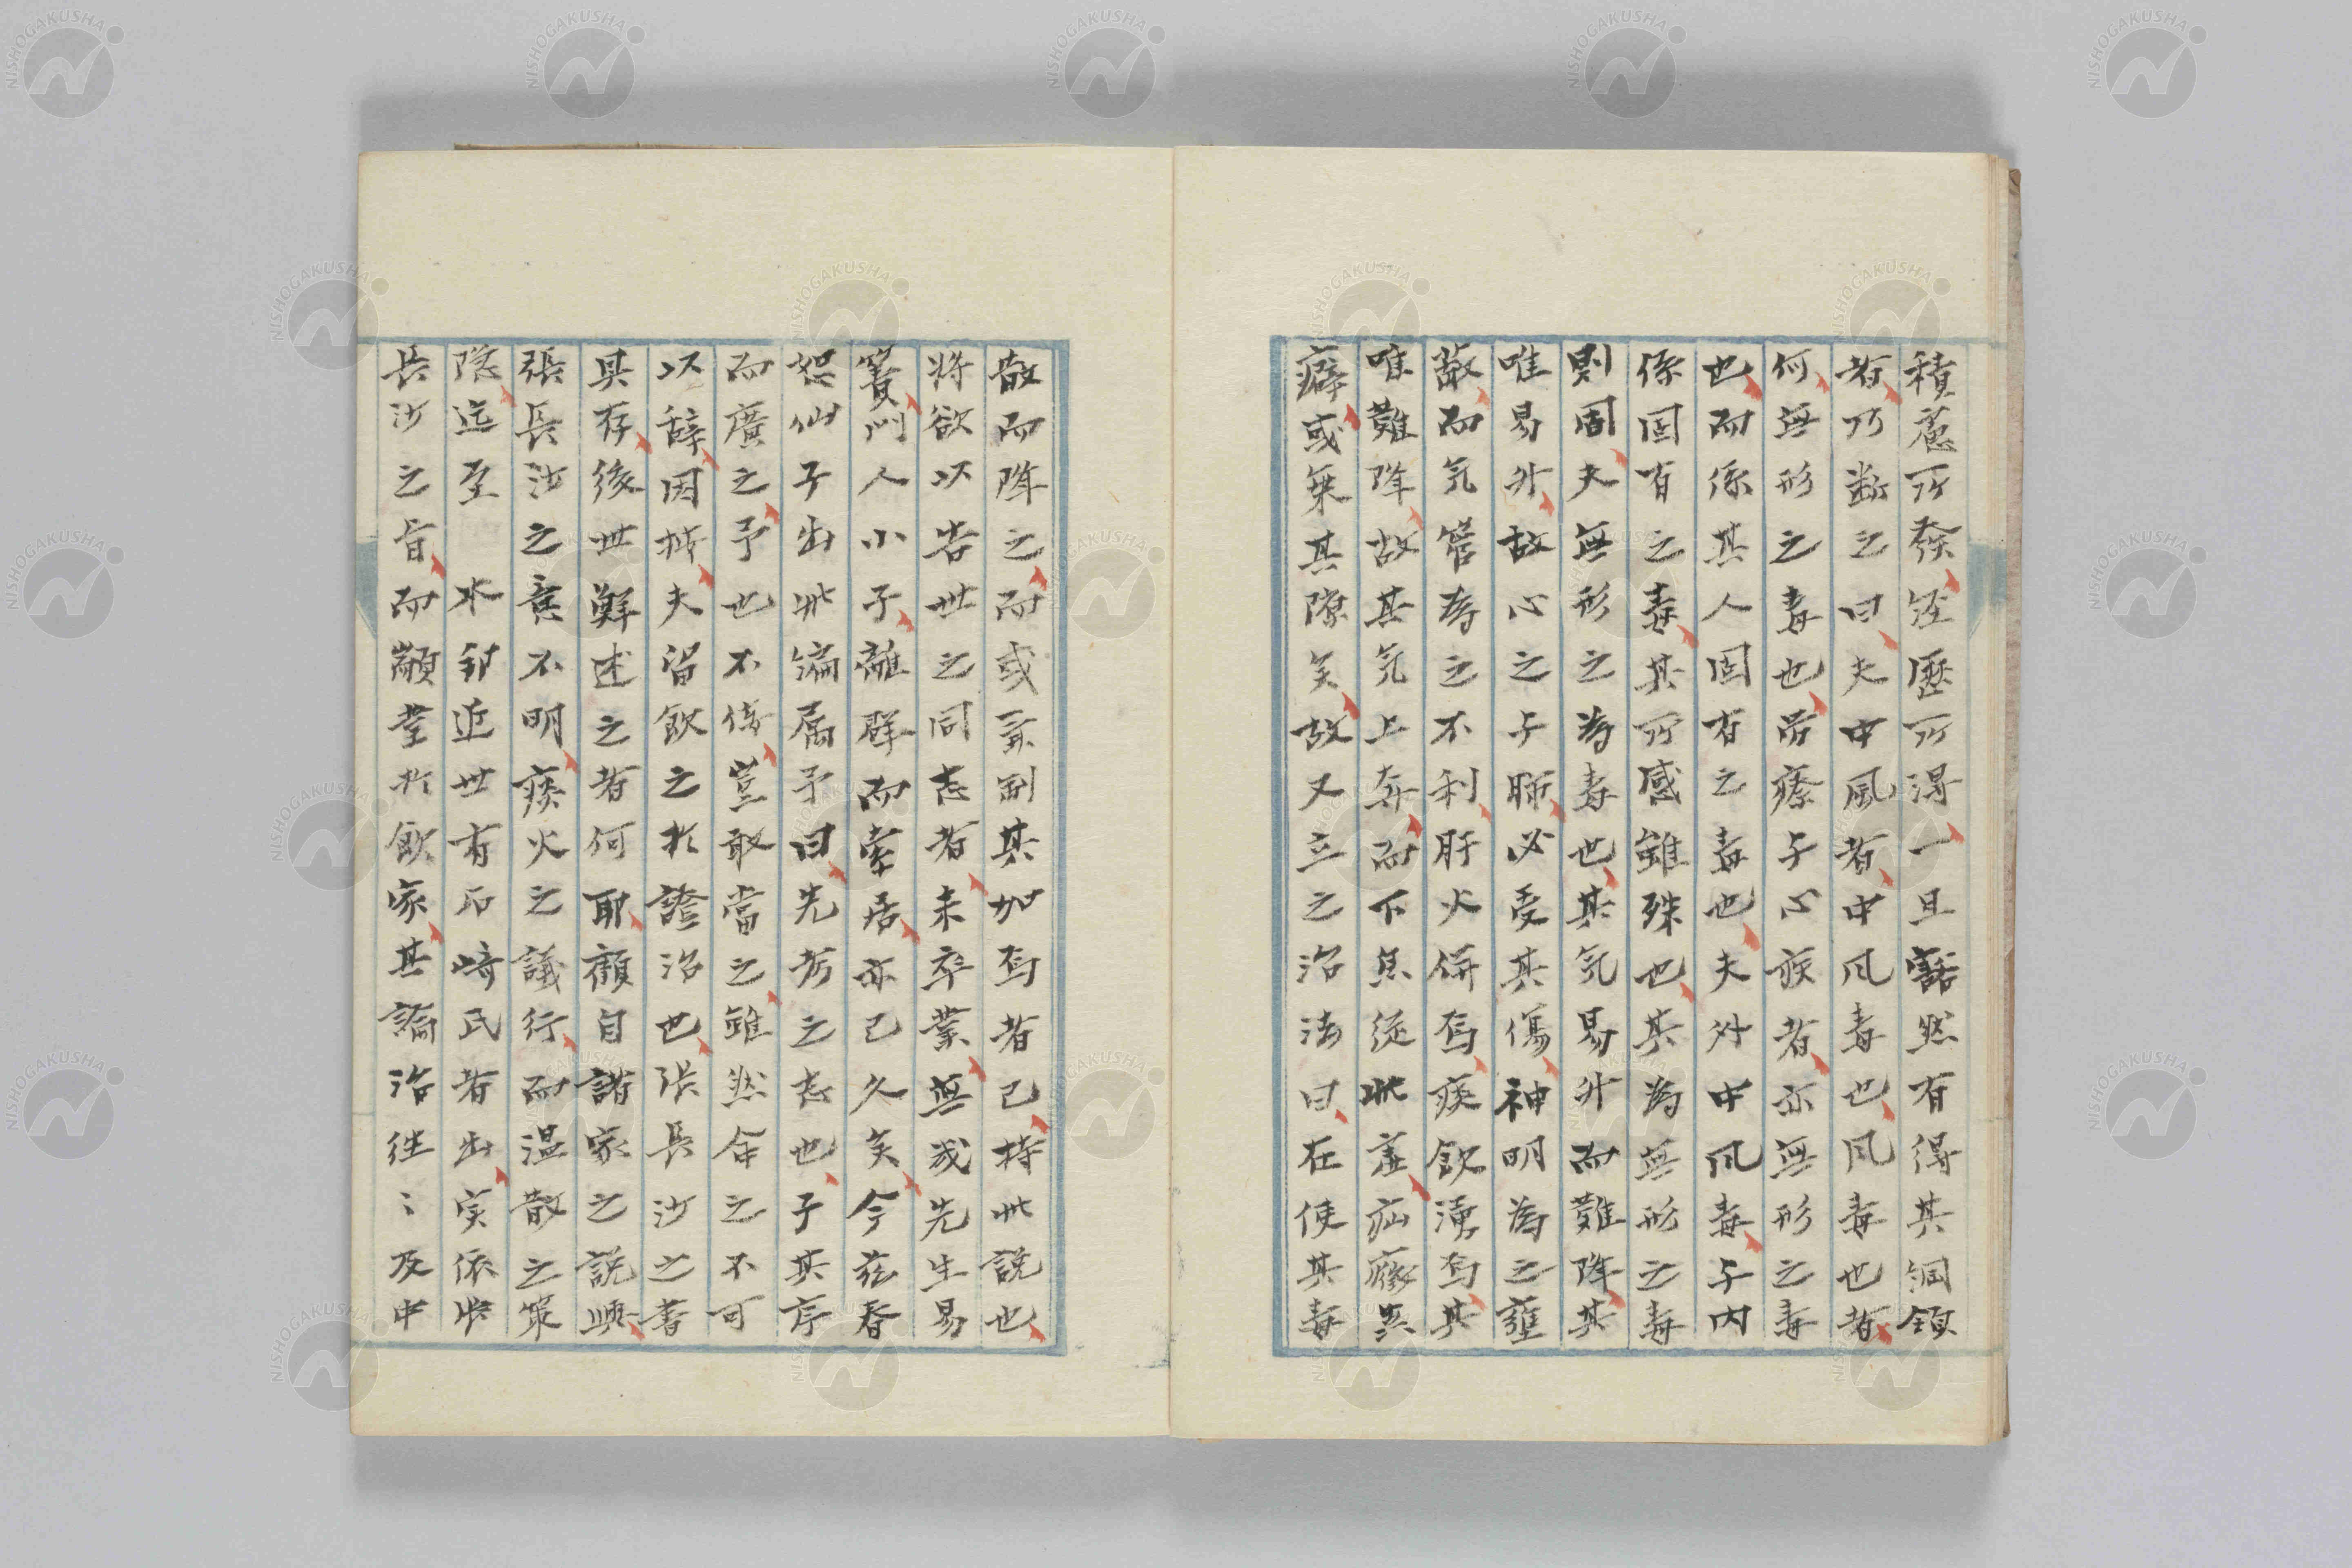 積慮所發經歷所得一旦豁然有得其洞領
者乃斷之曰夫中風者中風毒也風毒也者
何無形之毒也留瘵予心疾者亦無形之毒
也而係其人固有之毒也夫外中風毒予內
係固有之毒其所感雖殊也其為無形之毒
則固夫無形之為毒也其氣易升而難降其
唯易升故心之予肺必受其傷神明為之壅
蔽而氣管為之不利肝火併焉痰飲湧焉其
唯難降故其氣上奔而下焦從此虛疝癥
癖或乘其隙矣故又立之治法曰在使其毒
散而降之而或謂制其加焉者已持此說也
將欲以告世之同志者未卒業無我先生易
簀門人小子離群而索居亦已久矣今茲春
恕仙子出此編属予曰先考之志也子其序
而廣之予也不佞豈敢當之雖然命之不可
以辭因哉夫留飲之於證治也張長沙之書
具存後世鮮述之者何耶顧自諸家之說興
張長沙之意不明痰火之議行而温散之策
隱迄至 本邦近世有石崎氏者出实依張
長沙之旨而顓堂於飲家其論治往〻及中
NISHOGAKUSHA